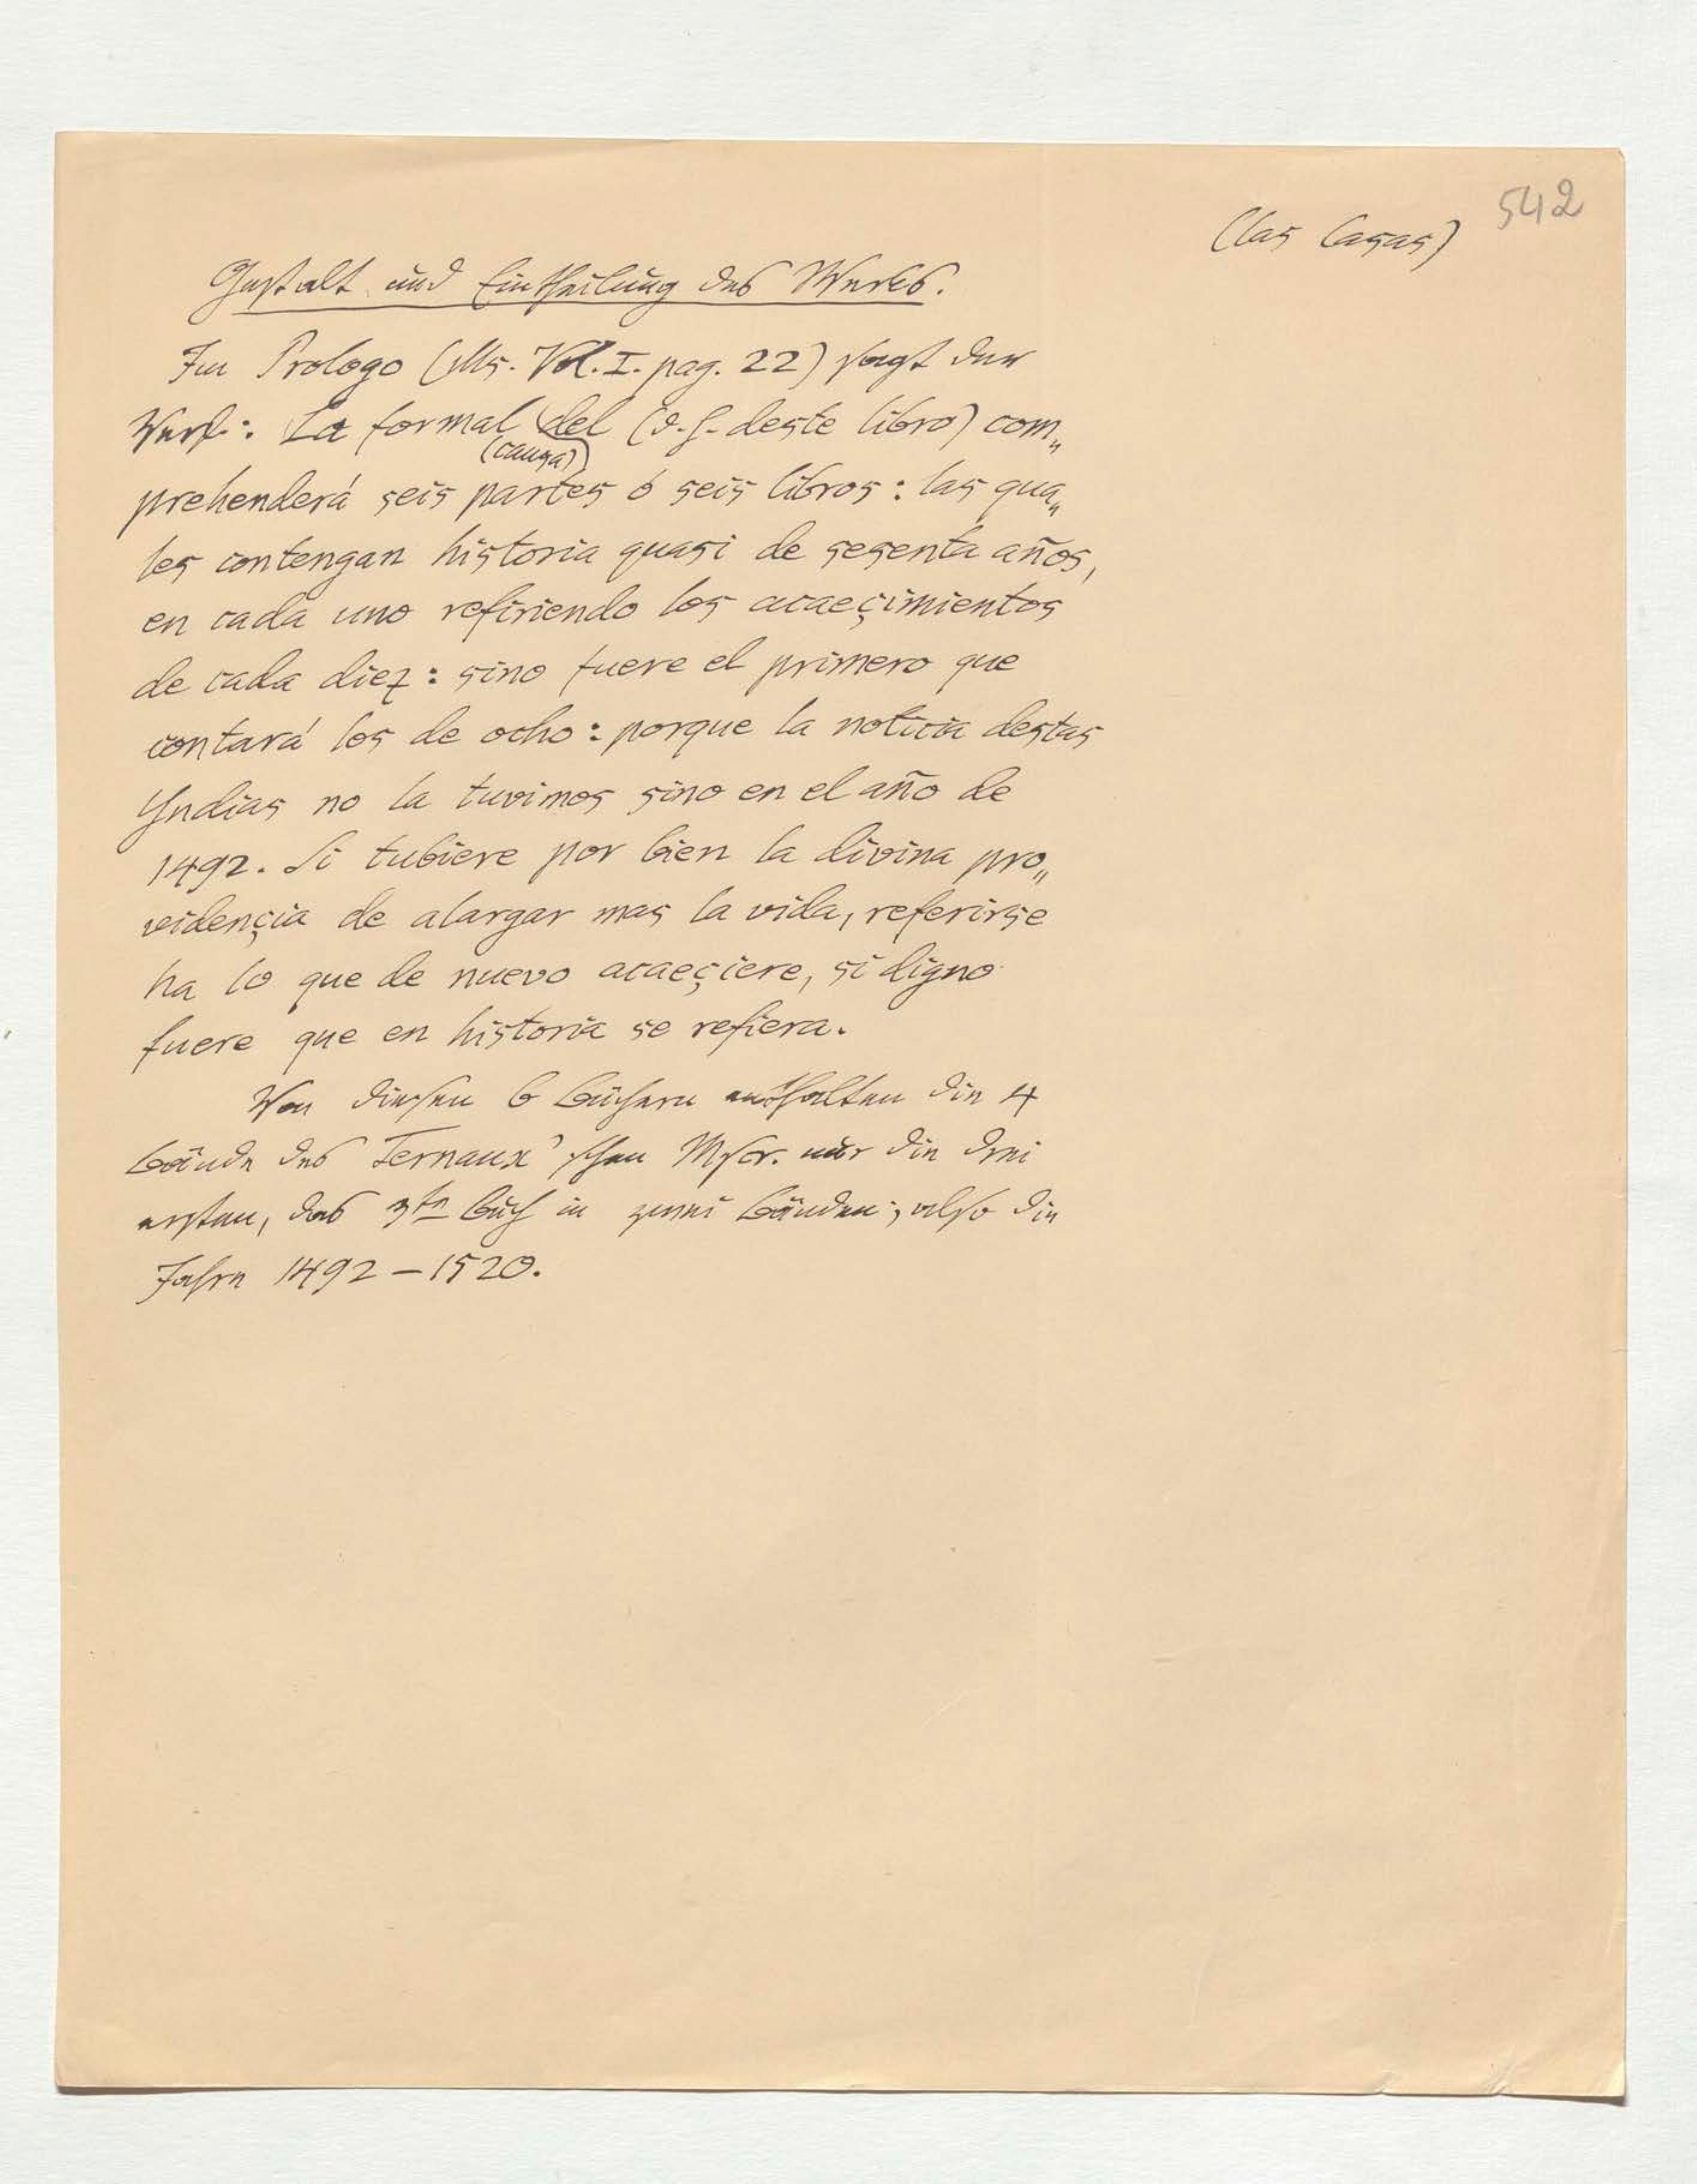 542
(las Casas)
Gestalt und Eintheilung des Werkes.
Im Prologo (Ms. Vol. I. pag. 22) sagt der
Verf.: La formal (causa) del (d. h. deste libro) com„
prehenderá seis partes ó seis libros: las qua„
les contengan historia quasi de sesenta años,
en cada uno refiriendo los acaeçimientos
de cada diez: sino fuere el primero que
contará los de ocho: porque la noticia destas
Yndias no la tuvimos sino en el año de
1492. Si tubiere por bien la divina pro„
vidençia de alargar mas la vida, referirse
ha lo que de nuevo acaeçiere, si digno
fuere que en historia se refiera.
Von diesen 6 Büchern enthalten die 4
Bände des Ternaux'schen Mscr. nur die drei
ersten, das 3te Buch in zwei Bänden; also die
Jahre 1492–1520.